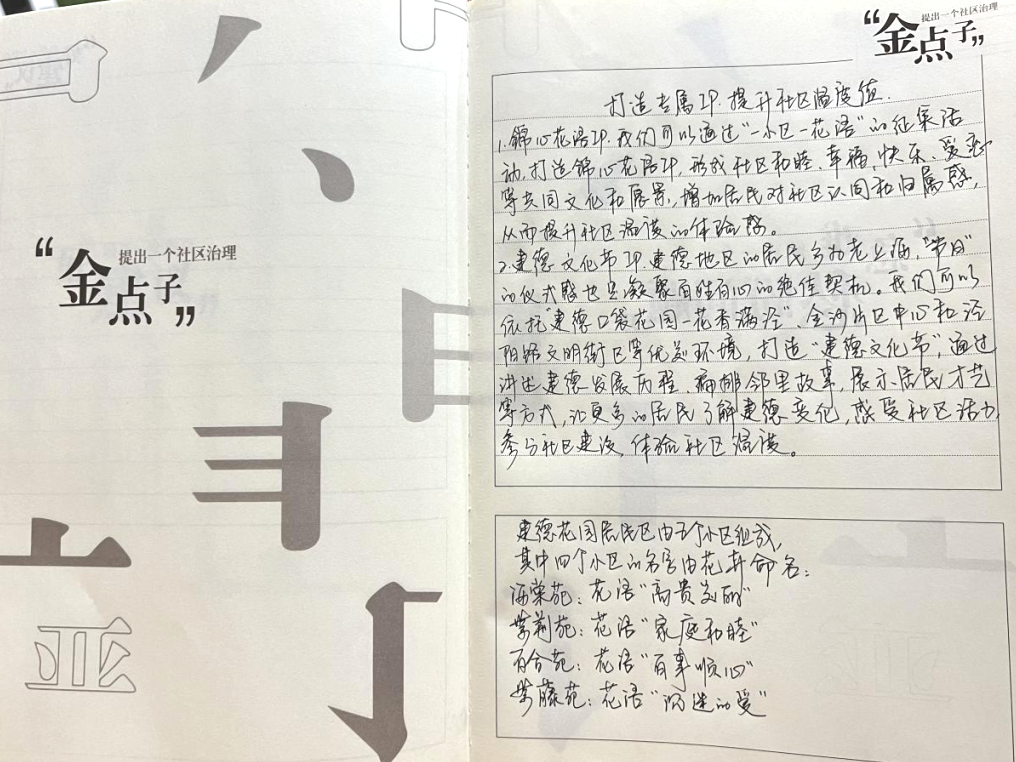 “金点子”
提出一个社区治理
“金点子”
提出一个社区治理
打造专属IP.提升社区温度值.
1.锦心花语IP.我们可以通过“一小区一花语”的征集活
动,打造锦心花语IP,形成社区和睦、幸福、快乐、爱恋
等共同文化和愿景,增加居民对社区认同和归属感,
从而提升社区温度的体验感。
2.建德文化节IP.建德地区的居民多为老上海,“节日”
的仪式感也是凝聚百姓百心的绝佳契机。我们可以
依托“建德口袋花园一花香满泾”、金沙片区中心和泾
阳路文明街区等优美环境,打造“建德文化节”,通过
讲述建德发展历程、编排邻里故事,展示居民才艺
等方式,让更多的居民了解建德变化,感受社区活力,
参与社区建设,体验社区温度。
建德花园居民区由五个小区组成,
其中四个小区的名字由花卉命名:
海棠苑:花语“高贵美丽”
紫荆苑:花语“家庭和睦”
百合苑:花语“百事顺心”
紫藤苑:花语“沉迷的爱”